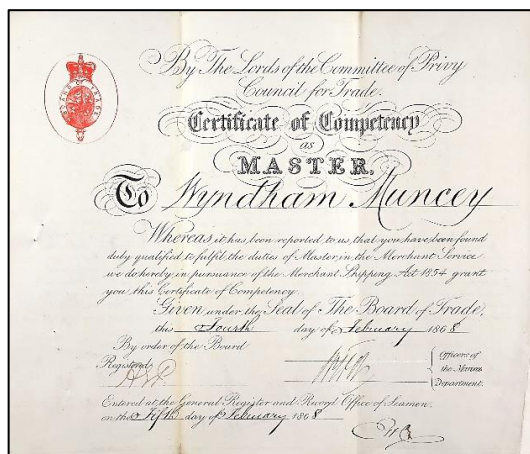 BOARD OF TRADE
By The Lords of the Committee of Privy
Council for Trade.
Certificate of Competency
as
MASTER.
To Wyndham Muncey
Whereas it has been reported to us, that you have been found
duly qualified to fulfil the duties of Master in the Merchant Service
we do hereby in pursuance of the Merchant Shipping Act 1854 grant
you this Certificate of Competency.
Given under the Seal of The Board of Trade,
this Fourth day of February 1868
By order of the Board
Registered
Officers of
the Marine
Department.
Entered at the General Register and Record Office of Seamen.
on the Fifth day of February 1868